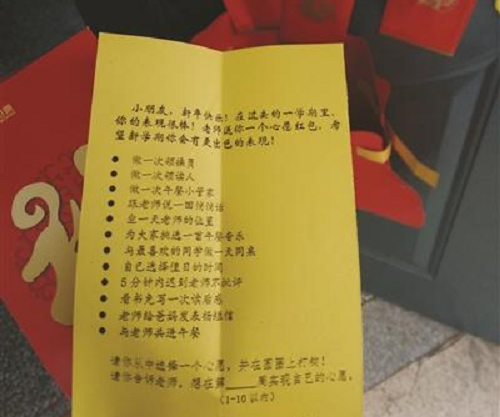 小朋友，新年快乐！在过去的一学期里，
你的表现很棒！老师送你一个心愿红包，希
望新学期你会有更出色的表现！
● 做一次领操员
● 做一次领读人
● 做一次午餐小管家
● 跟老师说一回悄悄话
● 坐一天老师的位置
● 为大家挑选一首午餐音乐
● 与最喜欢的同学做一天同桌
● 自己选择值日的时间
◆ 5分钟内迟到老师不批评
● 看书免写一次读后感
● 老师给爸妈发表扬短信
● 与老师共进午餐
请你从中选择一个心愿，并在圆圈上打钩！
请你告诉老师，想在第____周实现自己的心愿。
（1-10以内）